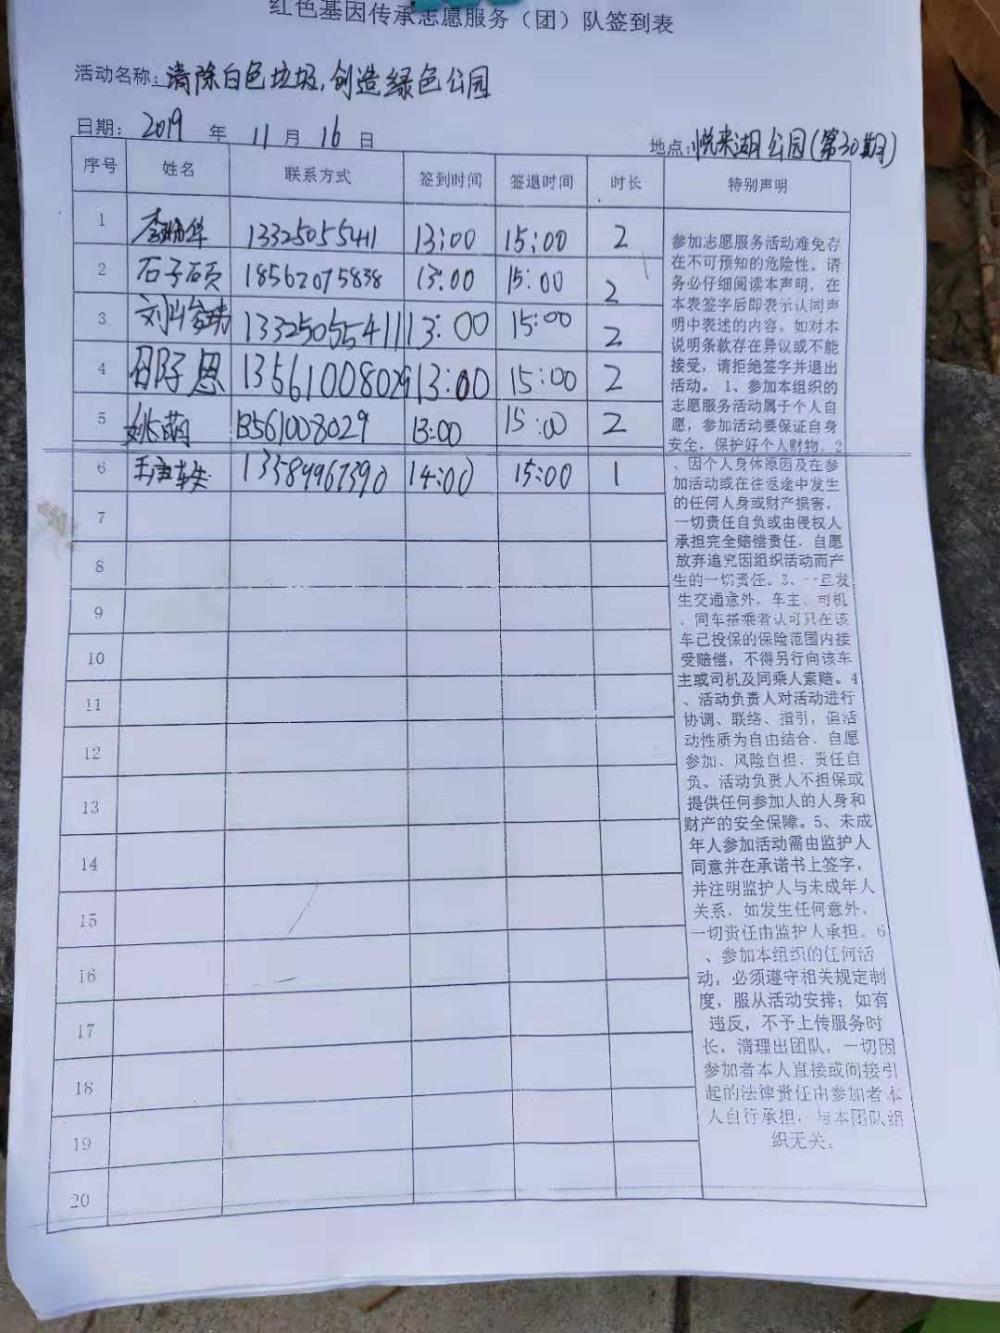 红色基因传承志愿服务（团）队签到表
活动名称：清除白色垃圾，创造绿色公园
日期：2019年11月16日 地点：悦来湖公园(第30期)
序号 姓名 联系方式 签到时间 签退时间 时长 特别声明
1 13325055411 13:00 15:00 2
2 石子硕 18562075838 13:00 15:00 2
3 13325055411 13:00 15:00 2
4 13561008029 13:00 15:00 2
5 姚萌 13561008029 13:00 15:00 2
6 13589961390 14:00 15:00 1
7
8
9
10
11
12
13
14
15
16
17
18
19
20
参加志愿服务活动难免存
在不可预知的危险性。请
务必仔细阅读本声明，在
本表签字后即表示认同声
明中表述的内容。如对本
说明条款存在异议或不能
接受，请拒绝签字并退出
活动。1、参加本组织的
志愿服务活动属于个人自
愿，参加活动要保证自身
安全，保护好个人财物。2
、因个人身体原因及在参
加活动或在往返途中发生
的任何人身或财产损害，
一切责任自负或由侵权人
承担完全赔偿责任，自愿
放弃追究因组织活动而产
生的一切责任。3、一旦发
生交通意外，车主、司机
、同车搭乘者认可只在该
车已投保的保险范围内接
受赔偿，不得另行向该车
主或司机及同乘人索赔。4
、活动负责人对活动进行
协调、联络、指引，但活
动性质为自由结合、自愿
参加、风险自担、责任自
负。活动负责人不担保或
提供任何参加人的人身和
财产的安全保障。5、未成
年人参加活动需由监护人
同意并在承诺书上签字，
并注明监护人与未成年人
关系，如发生任何意外，
一切责任由监护人承担。6
、参加本组织的任何活
动，必须遵守相关规定制
度，服从活动安排；如有
违反，不予上传服务时
长，清理出团队，一切因
参加者本人直接或间接引
起的法律责任由参加者本
人自行承担，与本团队组
织无关。